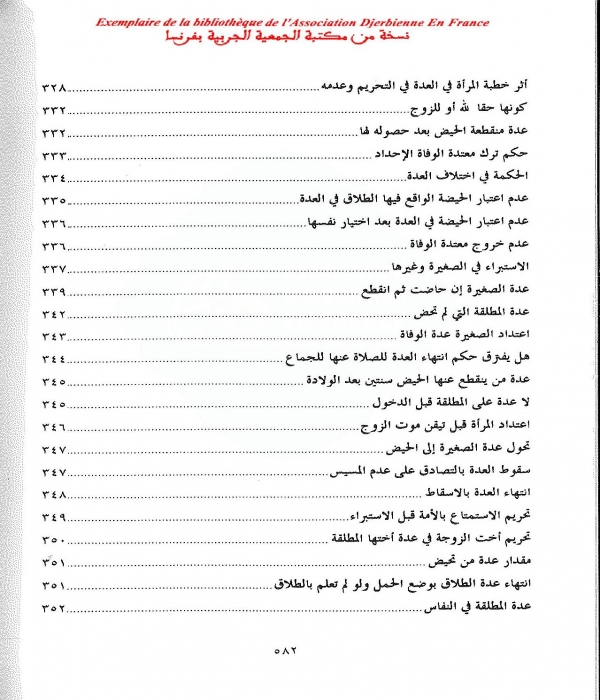 Exemplaire de la bibliothèque de l'Association Djerbienne En France
نسخة من مكتبة الجمعية الجربية بفرنسا
أثر خطبة المرأة في العدة في التحريم وعدمه ٣٢٨
كونها حقا لله أو للزوج ٣٣٢
عدة منقطعة الحيض بعد حصوله لها ٣٣٢
حكم ترك معتدة الوفاة الإحداد ٣٣٣
الحكمة في اختلاف العدة ٣٣٤
عدم اعتبار الحيضة الواقع فيها الطلاق في العدة ٣٣٥
عدم اعتبار الحيضة في العدة بعد اختيار نفسها ٣٣٦
عدم خروج معتدة الوفاة ٣٣٦
الاستبراء في الصغيرة وغيرها ٣٣٧
عدة الصغيرة إن حاضت ثم انقطع ٣٣٩
عدة المطلقة التي لم تحض ٣٤٢
اعتداد الصغيرة عدة الوفاة ٣٤٣
هل يفترق حكم انتهاء العدة للصلاة عنها للجماع ٣٤٤
عدة من ينقطع عنها الحيض سنتين بعد الولادة ٣٤٥
لا عدة على المطلقة قبل الدخول ٣٤٥
اعتداد المرأة قبل تيقن موت الزوج ٣٤٦
تحول عدة الصغيرة إلى الحيض ٣٤٧
سقوط العدة بالتصادق على عدم المسيس ٣٤٧
انتهاء العدة بالاسقاط ٣٤٨
تحريم الاستمتاع بالأمة قبل الاستبراء ٣٤٩
تحريم أخت الزوجة في عدة أختها المطلقة ٣٥٠
مقدار عدة من تحيض ٣٥١
انتهاء عدة الطلاق بوضع الحمل ولو لم تعلم بالطلاق ٣٥١
عدة المطلقة في النفاس ٣٥٢
٥٨٢